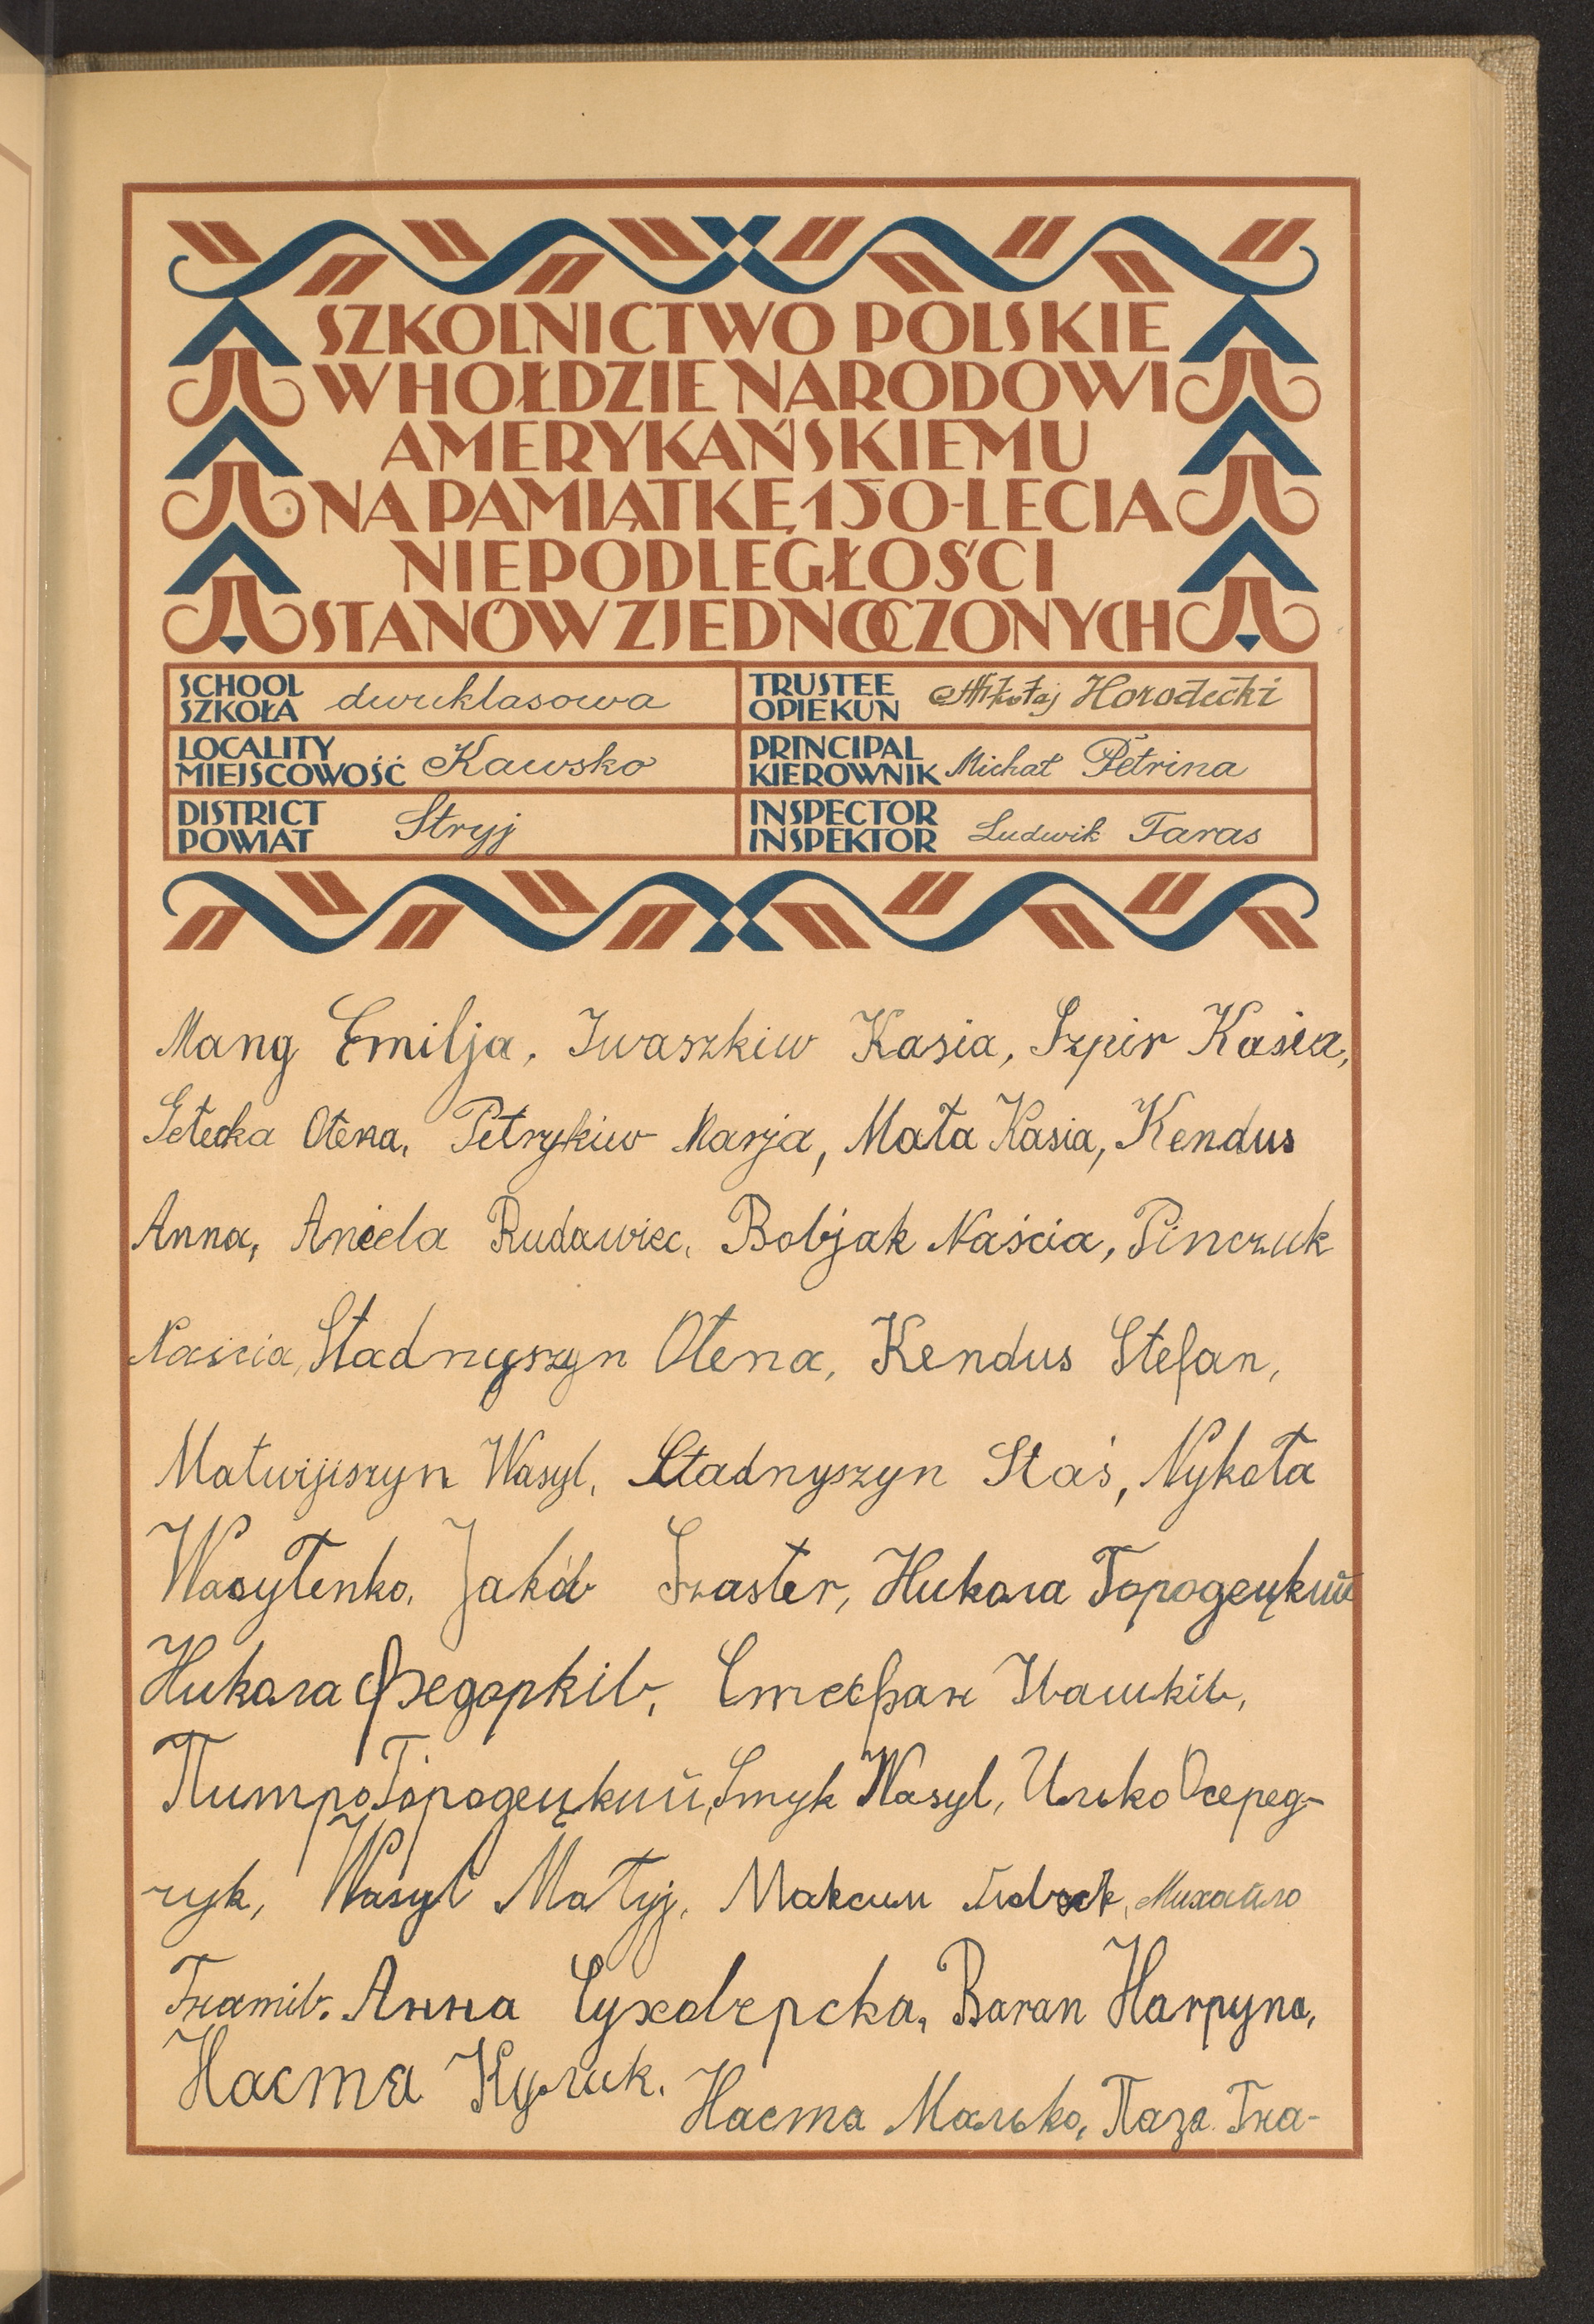 SZKOLNICTWO POLSKIE
W HOŁDZIE NARODOWI
AMERYKAŃSKIEMU
NA PAMIĄTKĘ 150-LECIA
NIEPODLEGŁOŚCI
STANÓW ZJEDNOCZONYCH
SCHOOL
SZKOŁA dwuklasowa
TRUSTEE
OPIEKUN Mikołaj Horodecki
LOCALITY
MIEJSCOWOŚĆ Kawsko
PRINCIPAL
KIEROWNIK Michał Petrina
DISTRICT
POWIAT Stryj
INSPECTOR
INSPEKTOR Ludwik Taras
Mang Emilja, Iwaszkiw Kasia, Szpir Kasia,
Ołena, Petrykiw Marja, Mała Kasia, Kendus
Anna, Aniela Rudawiec, Bobjak Naścia, Pinczuk
Naścia, Stadnyszyn Ołena, Kendus Stefan,
Matwijiszyn Wasyl, Stadnyszyn Staś, Nykoła
Wasyłenko, Jakób Szaster, Никола Городецкий
Никола Федорків, Стефан Івашків,
Питро Городецкий, Smyk Wasyl, Илько Осеред-
чук, Wasyl Matyj, Максим Михайло
Гнатів. Анна Суховерска, Baran Hapyna,
Настя Кулик. Наста Малько, Пазя Гна-